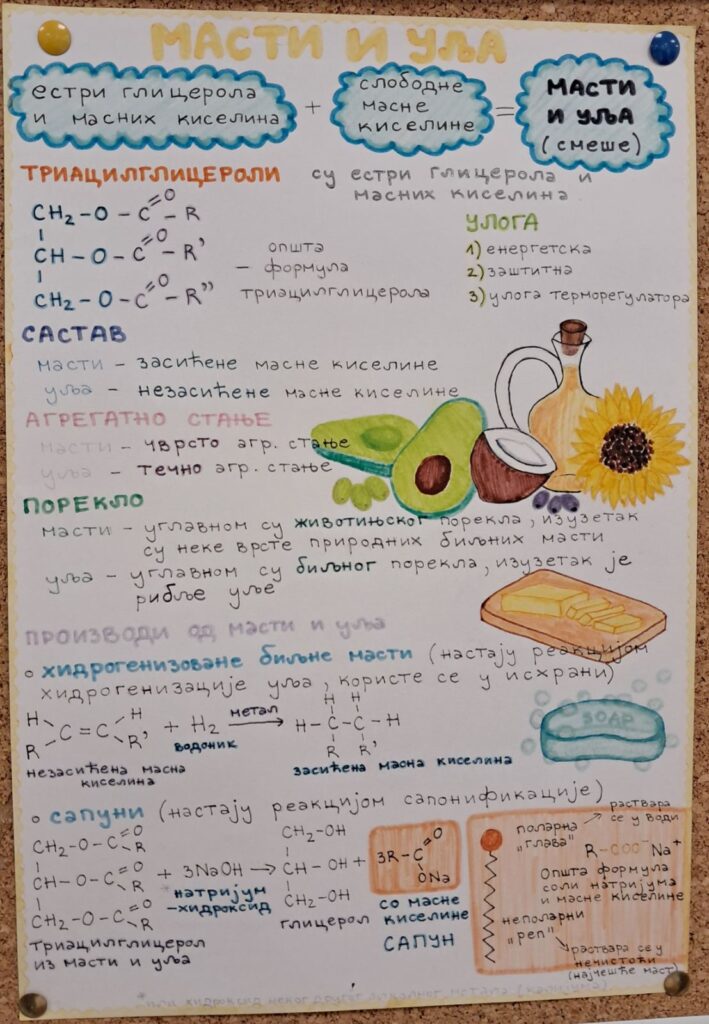 МАСТИ И УЉА
естри глицерола
и масних киселина
+
слободне
масне
киселине
=
МАСТИ
И УЉА
(смеше)
ТРИАЦИЛГЛИЦЕРОЛИ су естри глицерола и
масних киселина
CH₂-O-C=O-R
CH-O-C=O-R'
CH₂-O-C=O-R''
општа
- формула
триацилглицерола
УЛОГА
1) енергетска
2) заштитна
3) улога терморегулатора
САСТАВ
масти - засићене масне киселине
уља - незасићене масне киселине
АГРЕГАТНО СТАЊЕ
масти - чврсто агр. стање
уља - течно агр. стање
ПОРЕКЛО
масти - углавном су животињског порекла, изузетак
су неке врсте природних биљних масти
уља - углавном су биљног порекла, изузетак је
рибље уље
ПРОИЗВОДИ ОД МАСТИ И УЉА
хидрогенизоване биљне масти (настају реакцијом
хидрогенизације уља, користе се у исхрани)
H H
C=C
R R'
+ H₂
водоник
метал
H H
H-C-C-H
R R'
незасићена масна
киселина
засићена масна киселина
SOAP
сапуни (настају реакцијом сапонификације)
CH₂-O-C=O R
CH-O-C=O R
CH₂-O-C=O R
+ 3NaOH →
натријум
-хидроксид
CH₂-OH
CH-OH +
CH₂-OH
глицерол
3R-C=O
ONa
со масне
киселине
САПУН
триацилглицерол
из масти и уља
поларна
"глава"
раствара
се у води
R-COO⁻Na⁺
Општа формула
соли натријума
и масне киселине
неполарни
"реп"
раствара се у
нечистоћи
(најчешће маст)